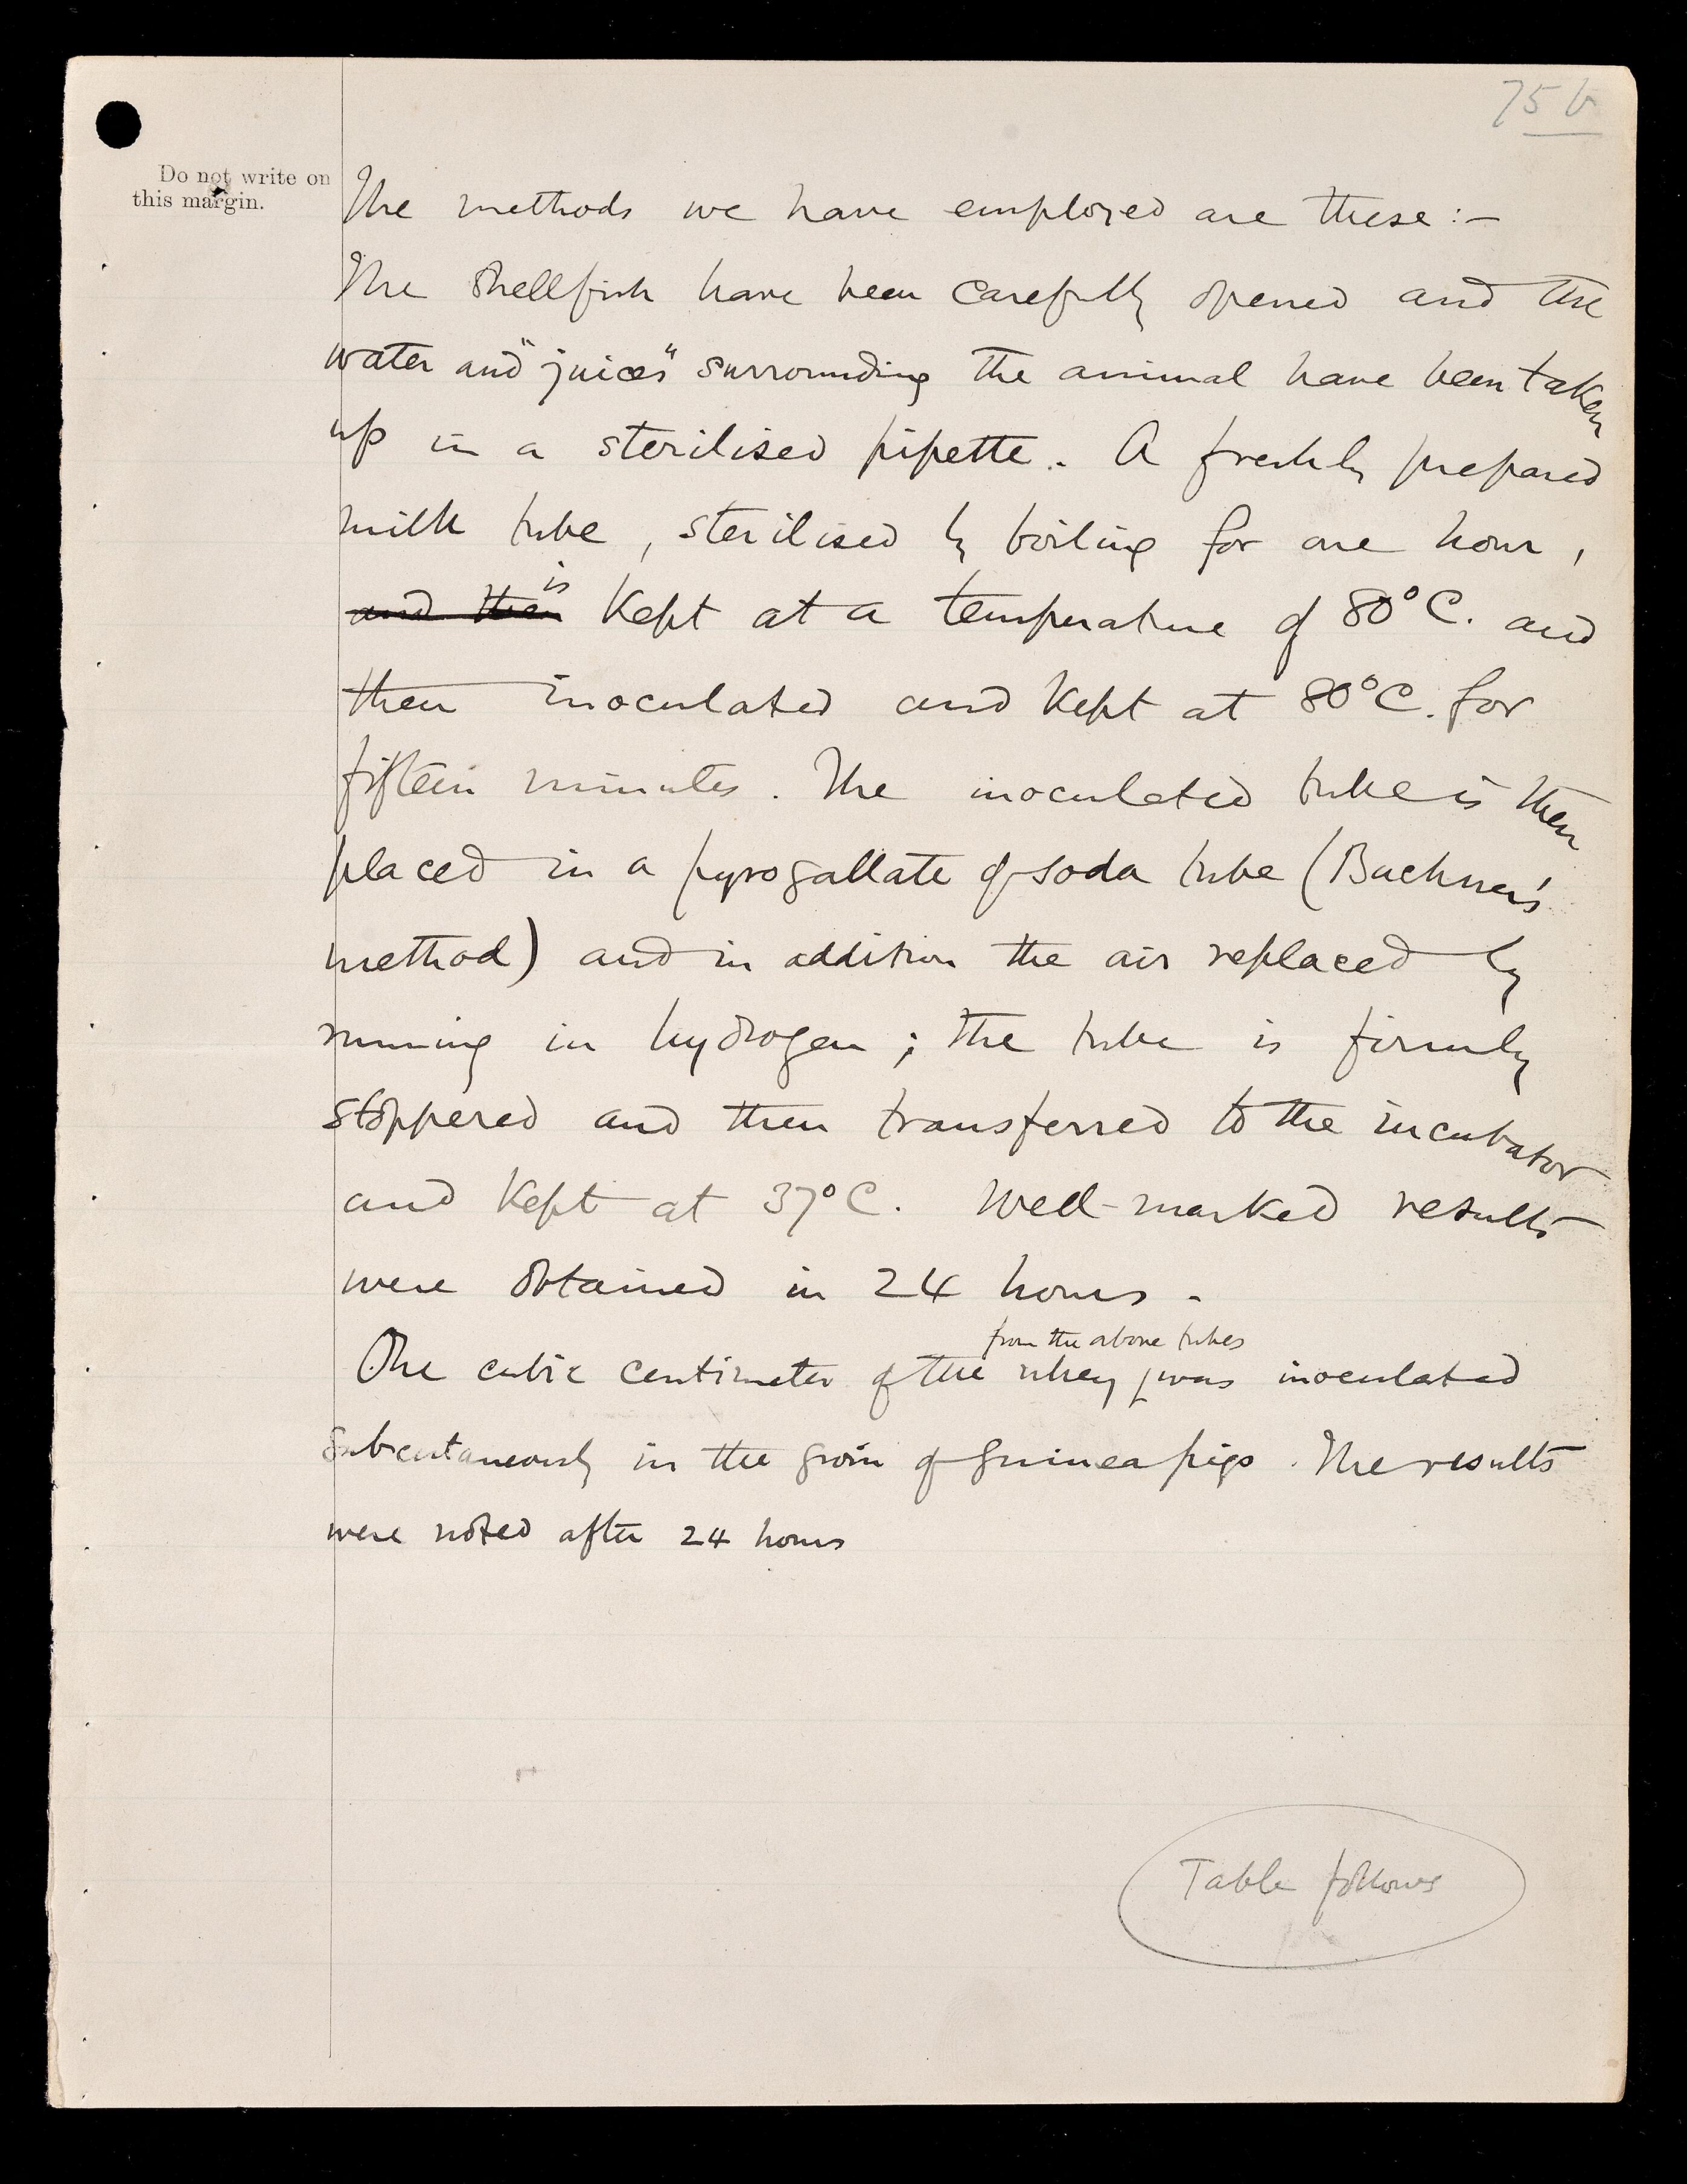 75 b
Do not write on
this margin.
The methods we have employed are these :-
The shellfish have been carefully opened and the
water and "juices" surrounding the animal have been taken
up in a sterilised pipette. A freshly prepared
milk tube, sterilised by boiling for one hour,
is
and then kept at a temperature of 80°C. and
then inoculated and kept at 80°C. for
fifteen minutes. The inoculated tube is then
placed in a pyrogallate of soda tube (Buchner's
method) and in addition the air replaced by
running in hydrogen ; the tube is firmly
stoppered and then transferred to the incubator
and kept at 37°C. Well-marked results
were obtained in 24 hours.
from the above tubes
One cubic centimeter of the whey was inoculated
subcutaneously in the groin of guinea pigs. The results
were noted after 24 hours
Table follows